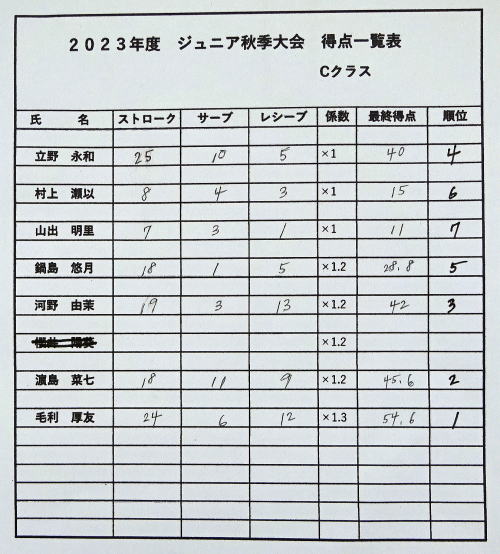 2023年度 ジュニア秋季大会 得点一覧表
Cクラス
氏 名 ストローク サーブ レシーブ 係数 最終得点 順位
立野 永和 25 10 5 ×1 40 4
村上 瀬以 8 4 3 ×1 15 6
山出 明里 7 3 1 ×1 11 7
鍋島 悠月 18 1 5 ×1.2 28.8 5
河野 由茉 19 3 13 ×1.2 42 3
×1.2
濵島 菜七 18 11 9 ×1.2 45.6 2
毛利 厚友 24 6 12 ×1.3 54.6 1